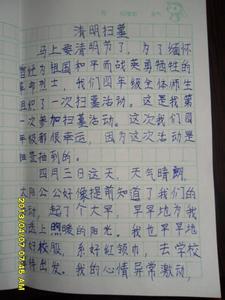 清明扫墓
马上要清明节了，为了缅怀
曾经为祖国和平而战英勇牺牲的
革命烈士，我们四年级全体师生
组织了一次扫墓活动。这是我第
一次参加扫墓活动。这次我们四
年级都很幸运，因为这次活动是
抽到的。
四月三日这天，天气晴朗，
太阳公公好像提前知道了我们的
动，起了个大早，早早地为我
送上照暖的阳光。我也早早地
好校服，系好红领巾，去学校
待出发。我的心情异常激动，
2013/04/07 07:45 AM